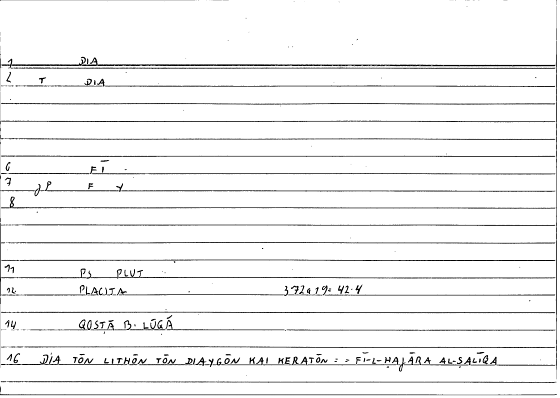 1 DIA
2 T DIA
6 FĪ
7 jP F Y
8
11 PS PLUT
12 PLACITA 372a19= 42.4
14 QOSṬĀ B. LŪQĀ
16 DIA TŌN LITHŌN TŌN DIAYGŌN KAI KERATŌN = = FĪ-L-ḤAJĀRA AL-ṢALĪQA